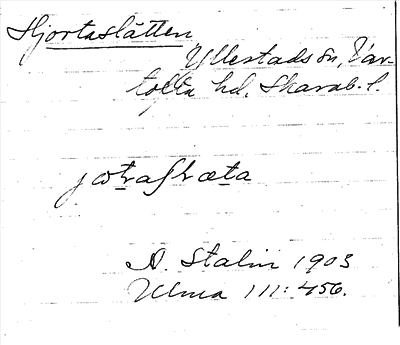 Hjortaslätten
Yllestads sn, Var-
tofta hd, Skarab. l.
A. Stalin 1903
Ulma 111:456.